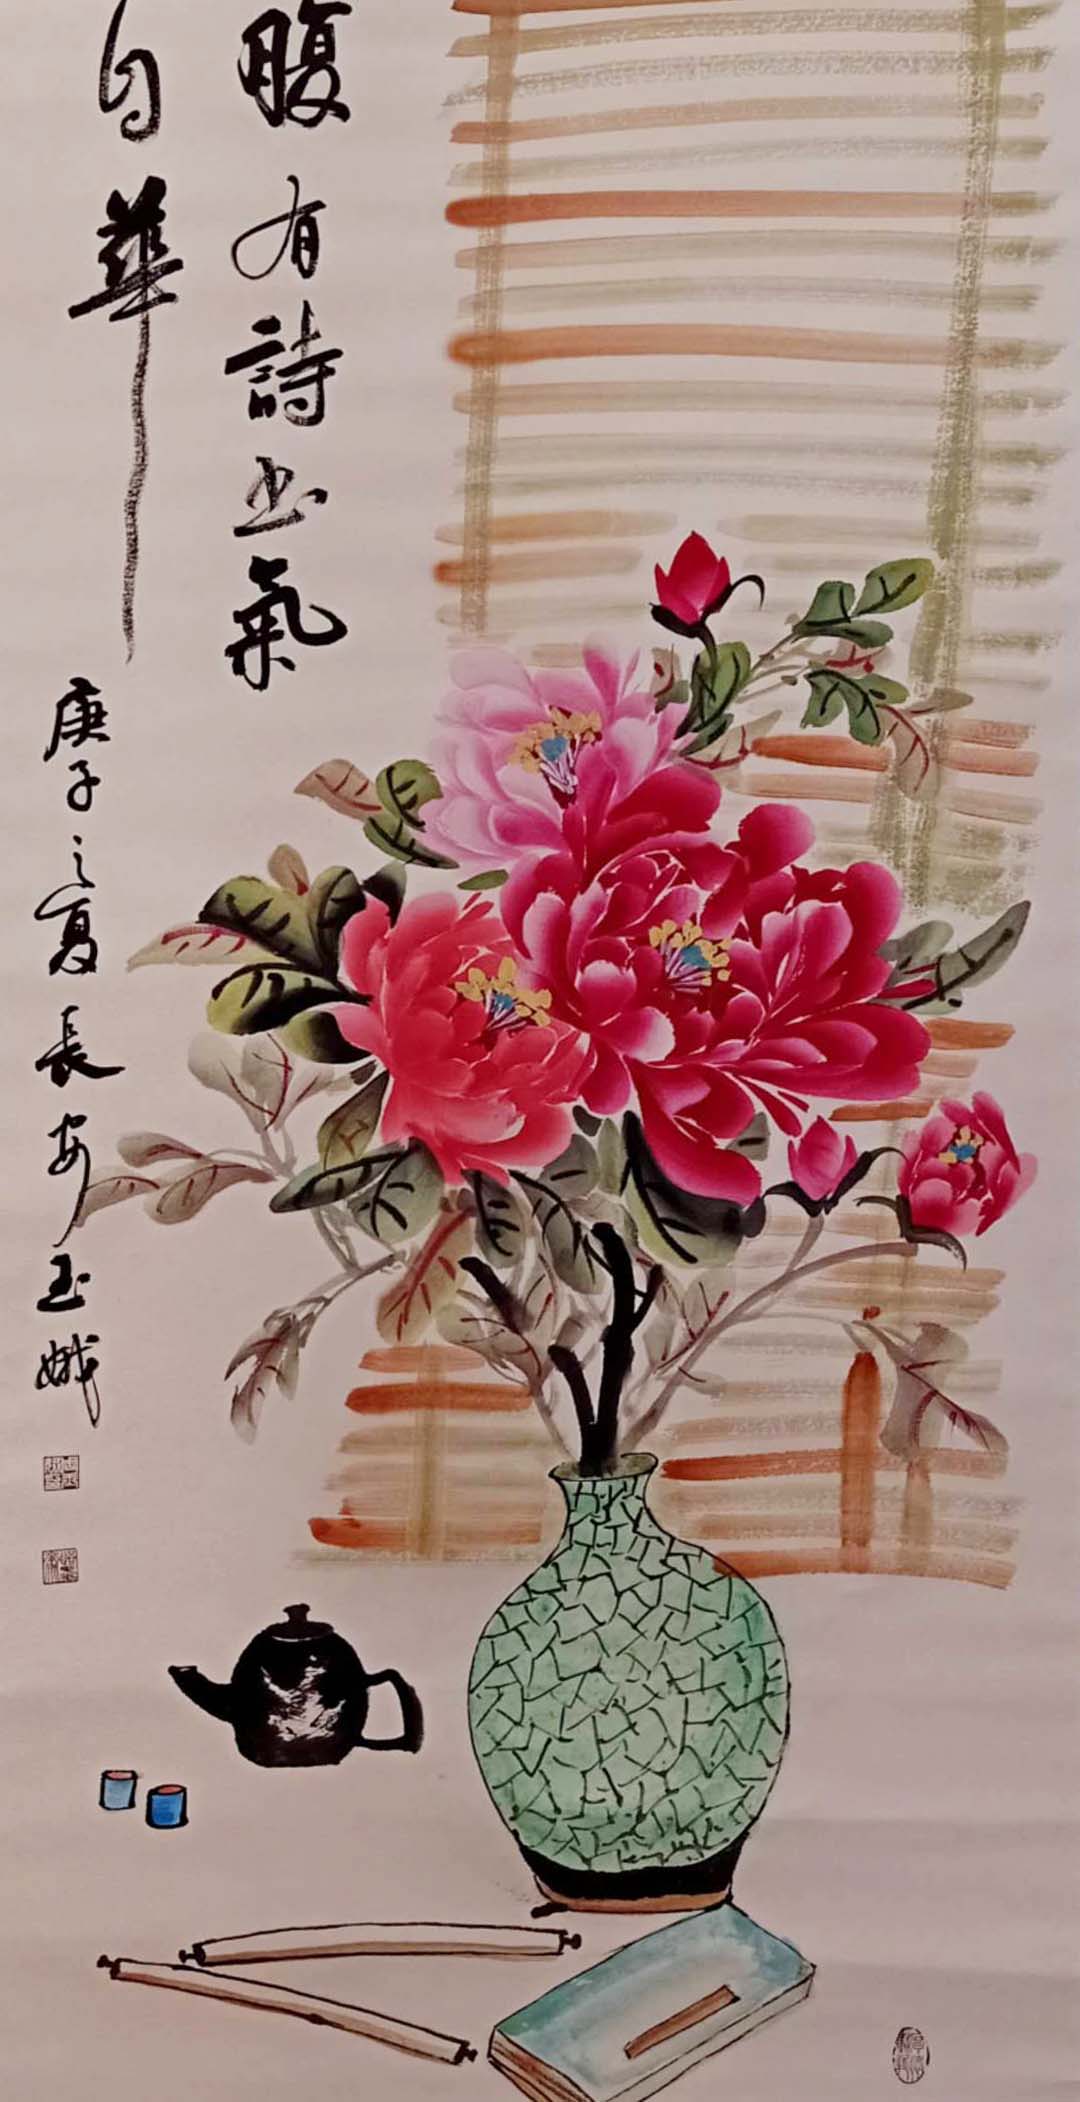 腹有詩書氣
自華
庚子之夏長安玉娥